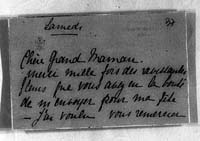 Samedi
37
Chère Grand Maman.
merci mille fois des ravissantes
fleurs que vous avez eu la bonté
de m'envoyer pour ma fête
– J'ai voulu vous remercier